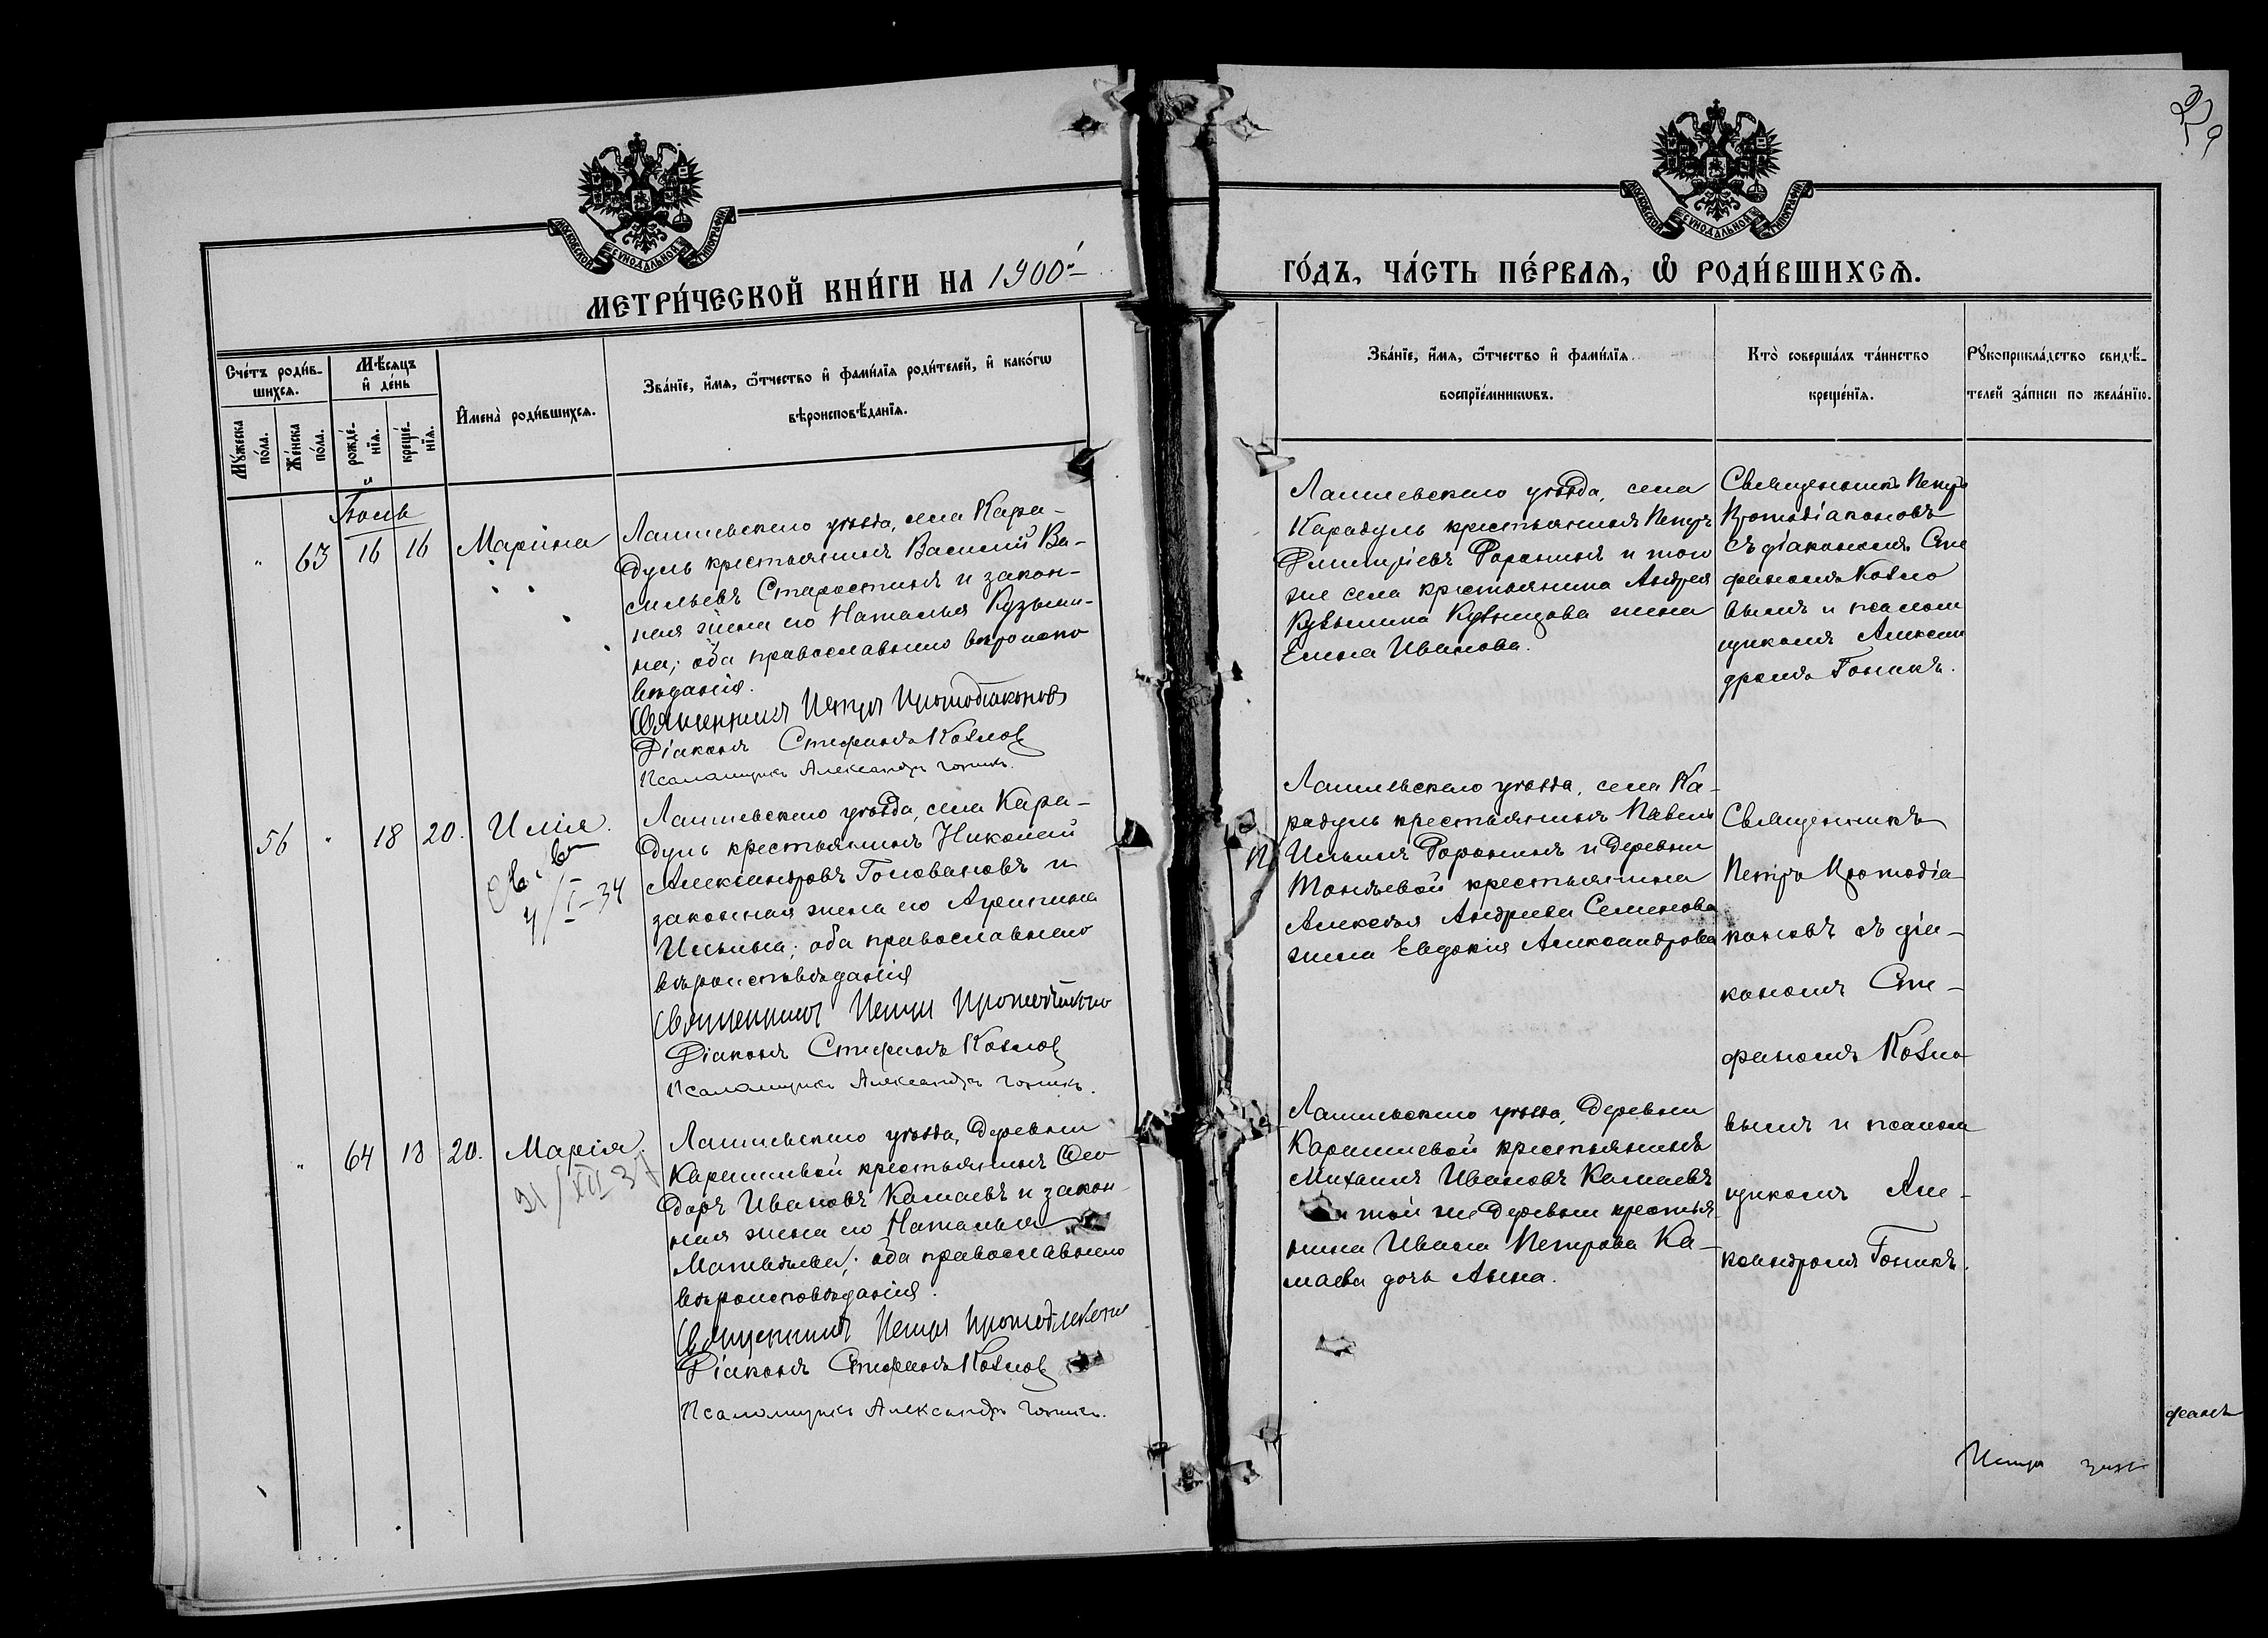 МЕТРИ́ЧЕСКОЙ КНИ́ГИ НА 1900й
ГО́ДЪ, ЧА́СТЬ ПЕ́РВАѦ, Ѽ РОДИ́ВШИХСѦ.
МОСКОВСКОЙ СѴНОДАЛЬНОЙ ТИПОГРАФІИ
МОСКОВСКОЙ СѴНОДАЛЬНОЙ ТИПОГРАФІИ
Сче́тъ роди́в-
шихсѧ.
Мѣ́сѧцъ
и҆ де́нь
Мꙋ́жеска
по́ла.
Же́нска
по́ла.
рожде́-
нїѧ.
креще́-
нїѧ.
И҆мена̀ роди́вшихсѧ.
Зва́нїе, и҆́мѧ, ѻ҆́тчество и҆ фами́лїѧ роди́телей, и҆ како́гѡ
вѣроисповѣ́данїѧ.
Зва́нїе, и҆́мѧ, ѻ҆́тчество и҆ фами́лїѧ
воспрїе́мникѡвъ.
Кто̀ соверша́лъ та́инство
креще́нїѧ.
Рꙋкоприкла́дство свидѣ́-
телей за́писи по жела́нїю.
63
16
16
Марина
Лаишевскаго уѣзда, села Кара-
дуль крестьянинъ Василій Ва-
сильевъ Старостинъ и закон-
ная жена его Наталья Кузьми-
на; оба православнаго вѣроиспо
вѣданія.
Священникъ Петръ Протодіаконовъ
Діаконъ Стефанъ Козлов
Псаломщикъ Александръ Гопикъ.
Лаишевскаго уѣзда, села
Карадуль крестьянинъ Петръ
Димитріевъ Форонинъ и того
же села крестьянина Андрея
Кузьмина Кузнецова жена
Елена Иванова.
Священникъ Петръ
Протодіаконовъ
съ діакономъ Сте
фаномъ Козло
вымъ и псалом
щикомъ Алексан
дромъ Гопикъ.
56
18
20.
Илія.
4/I-34
Лаишевскаго уѣзда, села Кара-
дуль крестьянинъ Николай
Александровъ Головановъ и
законная жена его Агрипина
Ильина; оба православнаго
вѣроисповѣданія
Священникъ Петръ Протодіаконо
Діаконъ Стефанъ Козлов
Псаломщикъ Александръ Гопикъ.
Лаишевскаго уѣзда, села Ка-
радуль крестьянинъ Павелъ
Ильинъ Форонинъ и деревни
крестьянина
Алексѣя Андреева Семенова
жена Евдокія Александрова
Священникъ
Петръ Протодіа
коновъ съ діа-
кономъ Сте-
фаномъ Козло
вымъ и псалом
щикомъ Але-
ксандромъ Гопикъ.
64
18
20.
Марія.
Лаишевскаго уѣзда, деревни
Карашевой крестьянинъ Ѳео
доръ Ивановъ Камаевъ и закон
ная жена его Наталья
Матвѣева; оба православнаго
вѣроисповѣданія.
Священникъ Петръ Протодіаконо
Діаконъ Стефанъ Козлов
Псаломщикъ Александръ Гопикъ.
Лаишевскаго уѣзда, деревни
Карашевой крестьянинъ
Михаилъ Ивановъ Камаевъ
и той же деревни крестья
нина Ивана Петрова Ка-
маева дочь Анна.